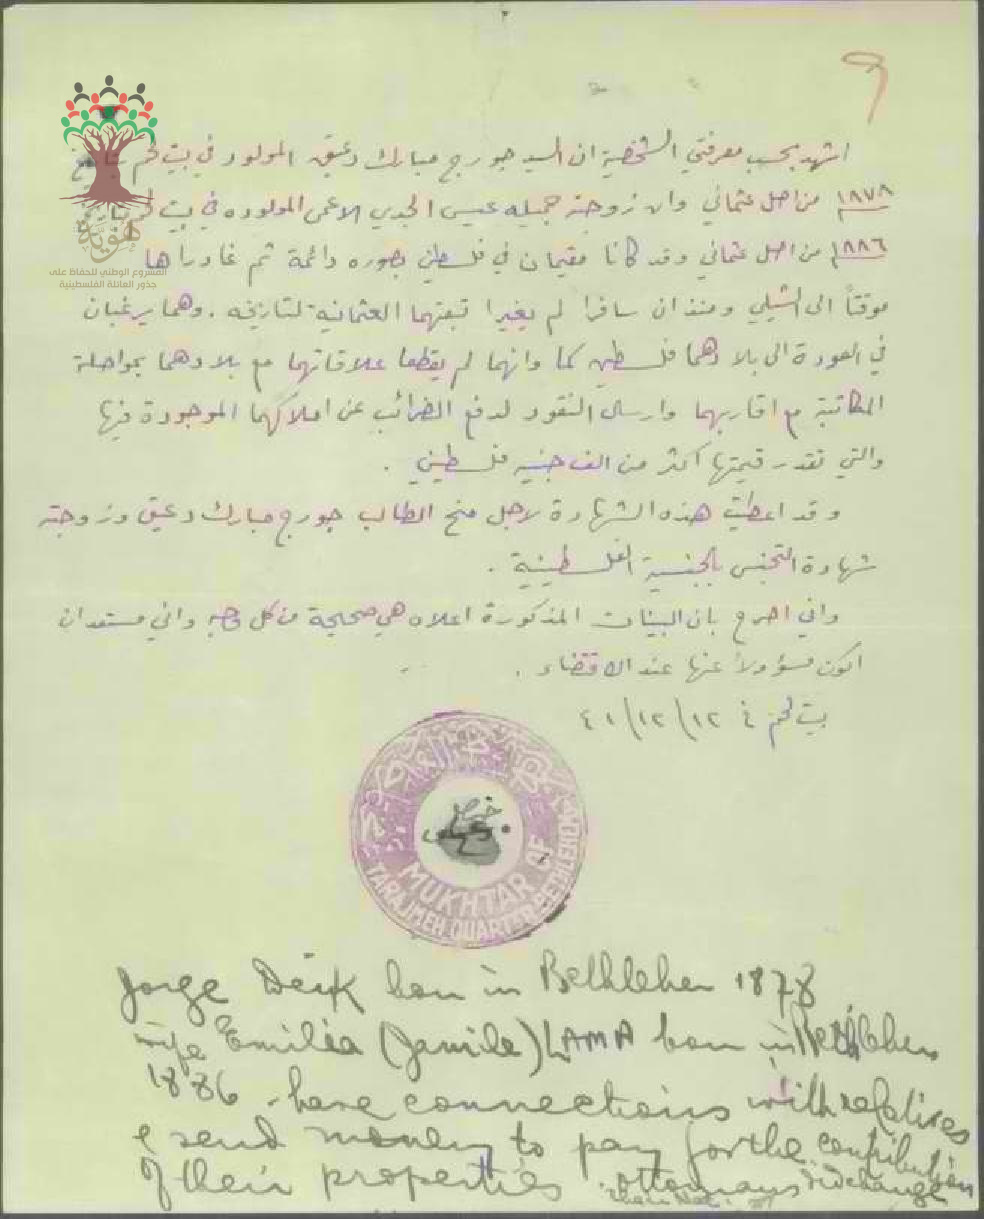 اشهد بحسب معرفتي الشخصية ان السيد جورج مبارك دعيق المولود في بيت لحم
١٨٧٨ من اصل عثماني وان زوجته جميله عيسى المولوده في بيت لحم
١٨٨٦ من اصل عثماني وقد كانا مقيمان في فلسطين بصوره دائمة ثم غادراها
موقتاً الى الشيلي ومنذ ان سافرا لم يغيرا تبعتهما العثمانية لتاريخه . وهما يرغبان
في العودة الى بلادهما فلسطين كما وانهما لم يقطعا علاقاتهما مع بلادهما بمواصلة
المكاتبة مع اقاربهما وارسال النقود لدفع الضرائب عن املاكهما الموجودة فيها
والتي تقدر قيمتها اكثر من الف جنيه فلسطيني .
وقد اعطيت هذه الشهادة لاجل منح الطالب جورج مبارك دعيق وزوجته
شهادة التجنس بالجنسية الفلسطينية .
واني اصرح بان البينات المذكورة اعلاه هي صحيحة من كل وجه واني مستعد ان
اكون مسؤولاً عنها عند الاقتضاء .
بيت لحم في ١٢/١٢/٤١
هوية
المشروع الوطني للحفاظ على
جذور العائلة الفلسطينية
MUKHTAR OF
TARAJMEH QUARTER BETHLEHEM
Jorge Deik born in Bethlehem 1878
wife Emilia (Jamile) LAMA born in Bethlehem
1886 - have connections with relatives
& send money to pay for the contribution
of their properties . ottomans didchange